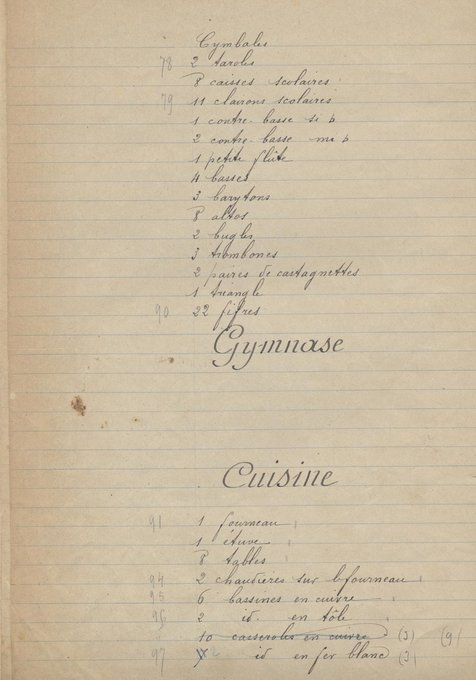 Cymbales
78 2 taroles
8 caisses scolaires
79 11 clairons scolaires
1 contre-basse si b
2 contre-basse mi b
1 petite flûte
4 basses
3 barytons
8 altos
2 bugles
3 trombones
2 paires de castagnettes
1 triangle
90 22 fifres
Gymnase
Cuisine
91 1 fourneau
1 étuve
8 tables
94 2 chaudières sur le fourneau
95 6 bassines en cuivre
96 2 id. en tôle
10 casseroles en cuivre (3) (9)
97 2 id en fer blanc (3)